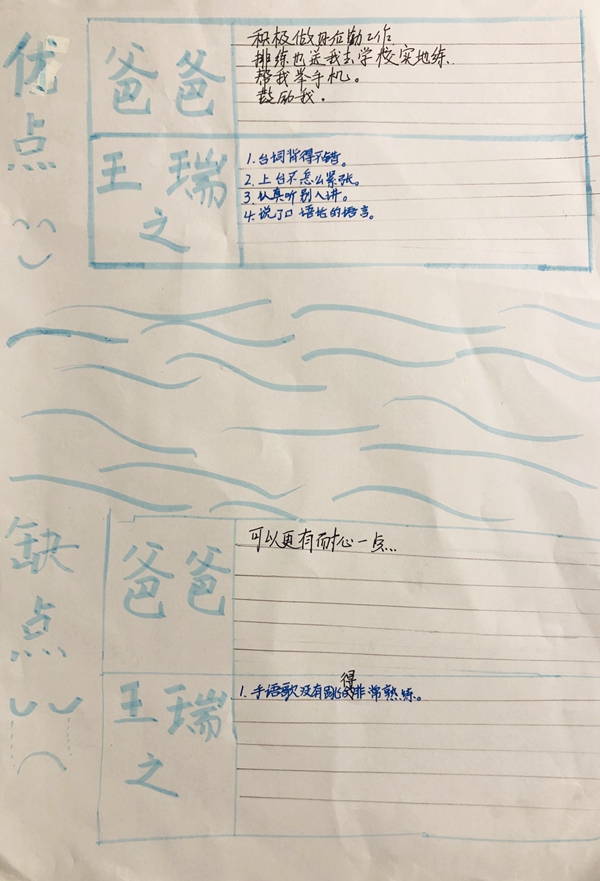 优点
爸爸
积极做好后勤工作
排练也送我去学校实地练.
帮我举手机。
鼓励我.
王瑞之
1.台词背得不错。
2.上台不怎么紧张。
3.认真听别人讲。
4.说了口语话的语言。
缺点
爸爸
可以更有耐心一点...
王瑞之
1.手语歌没有跳得非常熟练。